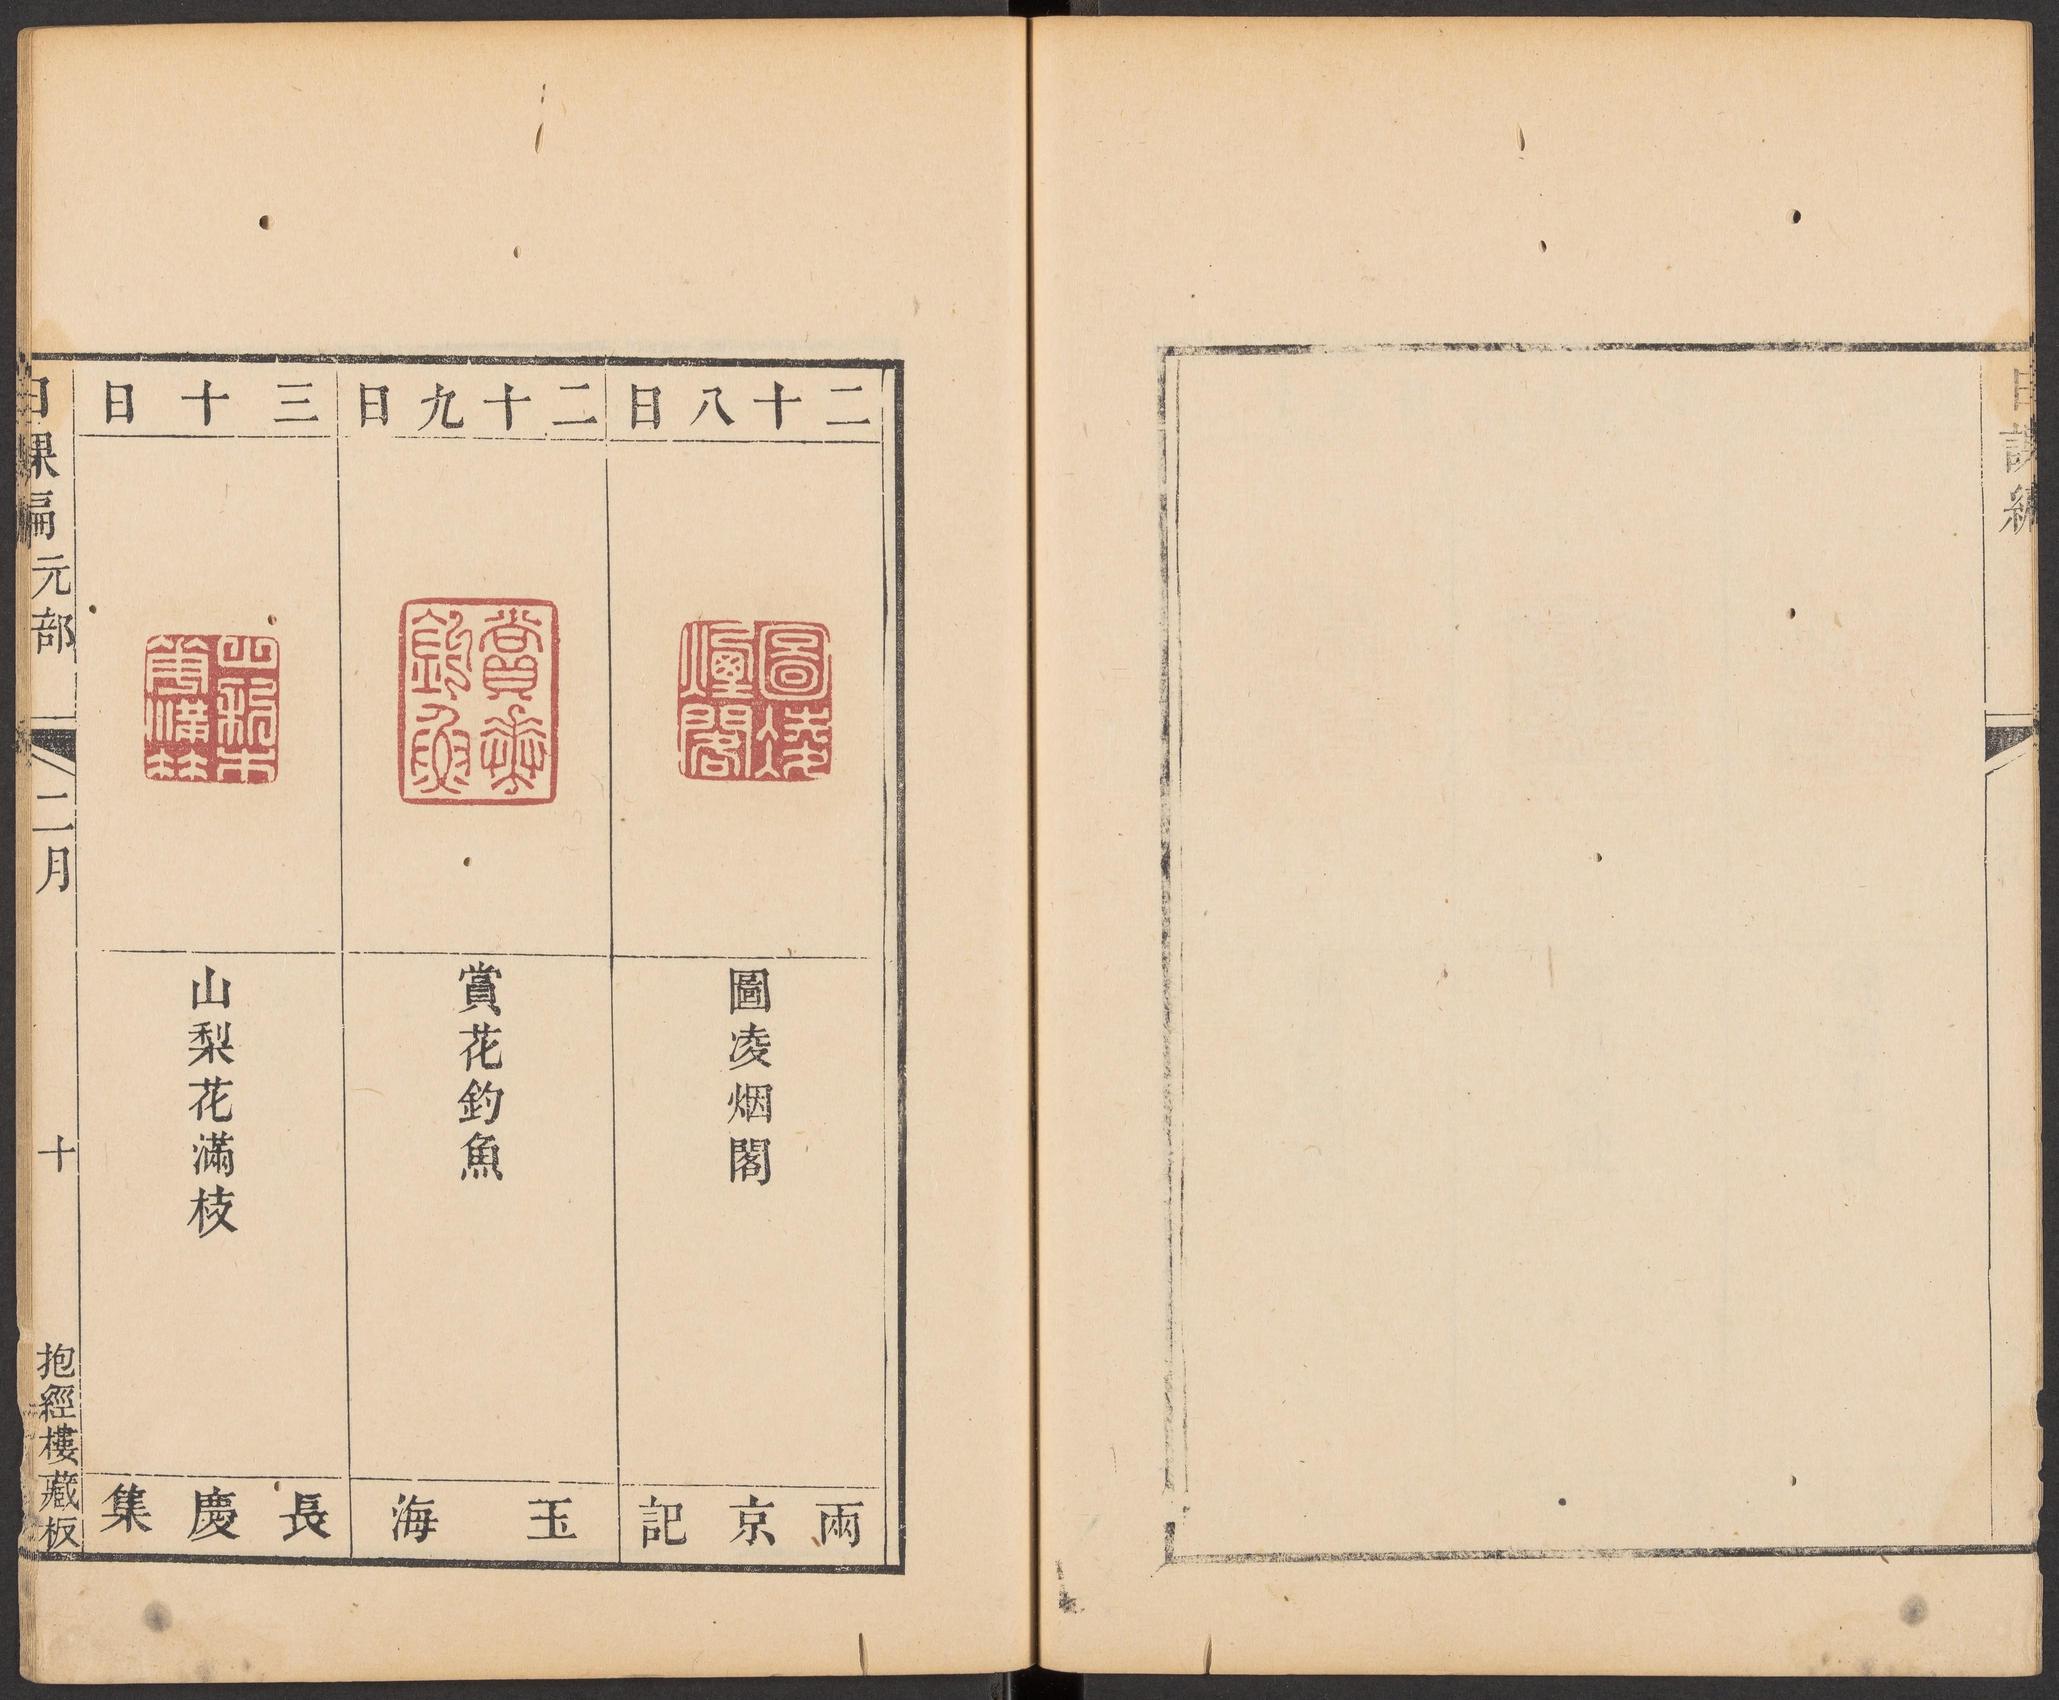 日課編
二十八日
圖凌烟閣
圖凌煙閣
兩京記
二十九日
賞花釣魚
賞花釣魚
玉海
三十日
山梨花滿枝
長慶集
日課編元部
二月
十
抱經樓藏板